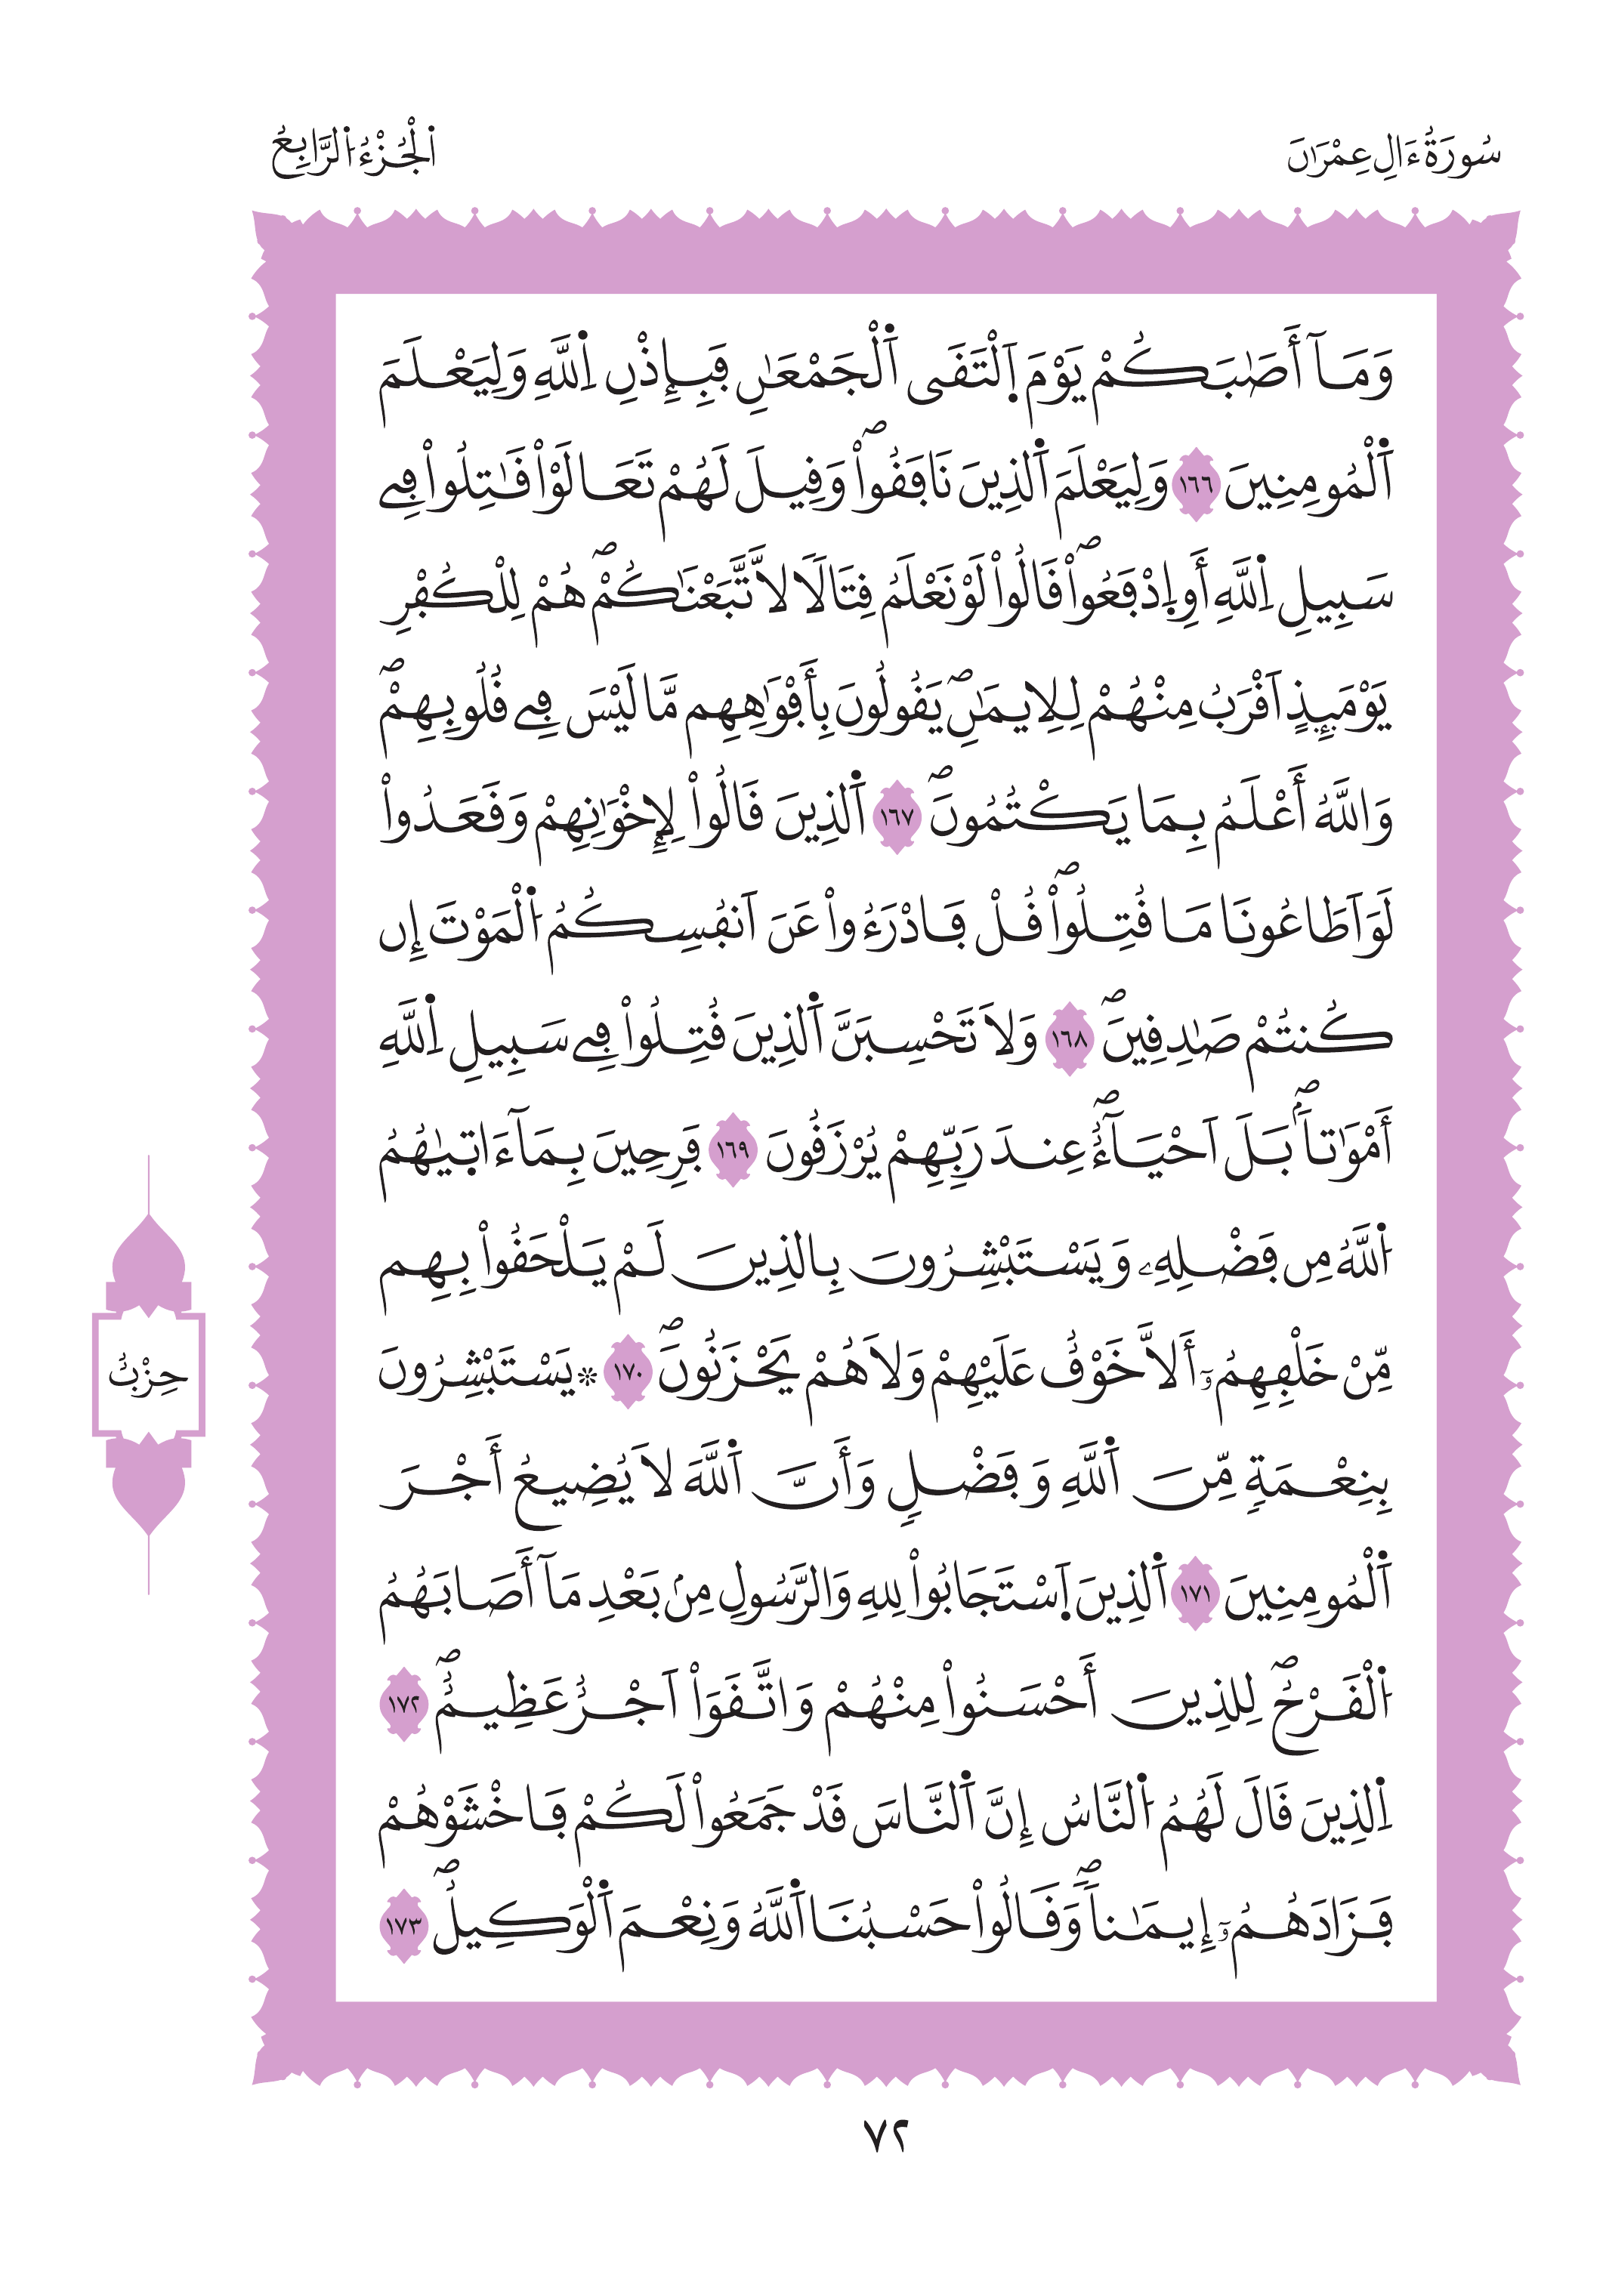 سُورَةُ ءَالِ عِمْرَٰنَ
اَلْجُزْءُ اُلرَّابِعُ
وَمَآ أَصَٰبَكُمْ يَوْمَ اَ۪لْتَقَى اَ۬لْجَمْعَٰنِ فَبِإِذْنِ اِ۬للَّهِ وَلِيَعْلَمَ
اَ۬لْمُومِنِينَ ١٦٦ وَلِيَعْلَمَ اَ۬لذِينَ نَافَقُواْۖ وَقِيلَ لَهُمْ تَعَالَوْاْ قَٰتِلُواْ فِے
سَبِيلِ اِ۬للَّهِ أَوِ اِ۪دْفَعُواْۖ قَالُواْ لَوْ نَعْلَمُ قِتَالَا لَّاتَّبَعْنَٰكُمْۖ هُمْ لِلْكُفْرِ
يَوْمَئِذٍ اَقْرَبُ مِنْهُمْ لِلِايمَٰنِۖ يَقُولُونَ بِأَفْوَٰهِهِم مَّا لَيْسَ فِے قُلُوبِهِمْۖ
وَاللَّهُ أَعْلَمُ بِمَا يَكْتُمُونَۖ ١٦٧ اَ۬لذِينَ قَالُواْ لِإِخْوَٰنِهِمْ وَقَعَدُواْ
لَوَ اَطَاعُونَا مَا قُتِلُواْۖ قُلْ فَادْرَءُواْ عَنَ اَنفُسِكُمُ اُ۬لْمَوْتَ إِن
كُنتُمْ صَٰدِقِينَۖ ١٦٨ وَلَا تَحْسِبَنَّ اَ۬لذِينَ قُتِلُواْ فِے سَبِيلِ اِ۬للَّهِ
أَمْوَٰتاَۢۖ بَلَ اَحْيَآءٌۖ عِندَ رَبِّهِمْ يُرْزَقُونَ ١٦٩ فَرِحِينَ بِمَآ ءَاتٜيٰهُمُ
اُ۬للَّهُ مِن فَضْلِهِۦ وَيَسْتَبْشِرُونَ بِالذِينَ لَمْ يَلْحَقُواْ بِهِم
مِّنْ خَلْفِهِمُۥٓ أَلَّا خَوْفٌ عَلَيْهِمْ وَلَا هُمْ يَحْزَنُونَۖ ١٧٠ ۞ يَسْتَبْشِرُونَ
بِنِعْمَةٍ مِّنَ اَ۬للَّهِ وَفَضْلٍ وَأَنَّ اَ۬للَّهَ لَا يُضِيعُ أَجْرَ
اَ۬لْمُومِنِينَ ١٧١ اَ۬لذِينَ اَ۪سْتَجَابُواْ لِلهِ وَالرَّسُولِ مِنۢ بَعْدِ مَآ أَصَابَهُمُ
اُ۬لْقَرْحُۖ لِلذِينَ أَحْسَنُواْ مِنْهُمْ وَاتَّقَوَاْ اَجْرٌ عَظِيمٌۖ ١٧٢
اِ۬لذِينَ قَالَ لَهُمُ اُ۬لنَّاسُ إِنَّ اَ۬لنَّاسَ قَدْ جَمَعُواْ لَكُمْ فَاخْشَوْهُمْ
فَزَادَهُمُۥٓ إِيمَٰناَۖ وَقَالُواْ حَسْبُنَا اَ۬للَّهُ وَنِعْمَ اَ۬لْوَكِيلُۖ ١٧٣
حِزْبٌ
٧٢